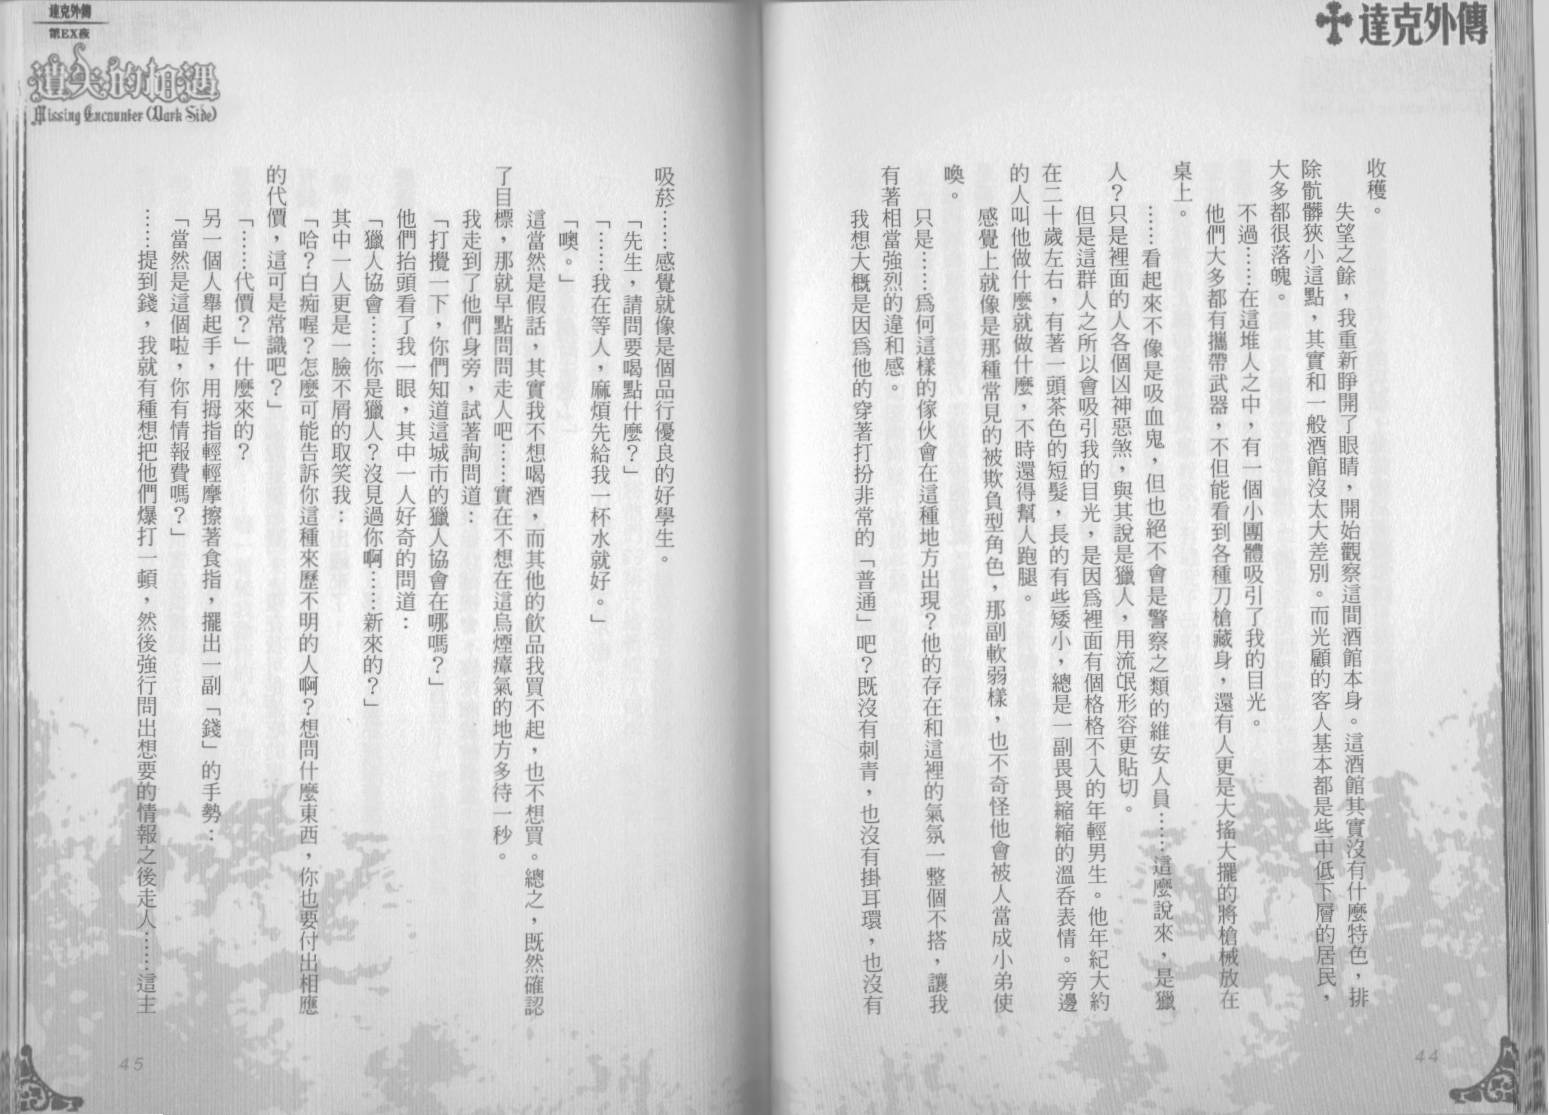 達克外傳
收穫。
失望之餘，我重新睜開了眼睛，開始觀察這間酒館本身。這酒館其實沒有什麼特色，排
除骯髒狹小這點，其實和一般酒館沒太大差別。而光顧的客人基本都是些中低下層的居民，
大多都很落魄。
不過……在這堆人之中，有一個小團體吸引了我的目光。
他們大多都有攜帶武器，不但能看到各種刀槍藏身，還有人更是大搖大擺的將槍械放在
桌上。
……看起來不像是吸血鬼，但也絕不會是警察之類的維安人員……這麼說來，是獵
人？只是裡面的人各個凶神惡煞，與其說是獵人，用流氓形容更貼切。
但是這群人之所以會吸引我的目光，是因為裡面有個格格不入的年輕男生。他年紀大約
在二十歲左右，有著一頭茶色的短髮，長的有些矮小，總是一副畏畏縮縮的溫吞表情。旁邊
的人叫他做什麼就做什麼，不時還得幫人跑腿。
感覺上就像是那種常見的被欺負型角色，那副軟弱樣，也不奇怪他會被人當成小弟使
喚。
只是……為何這樣的傢伙會在這種地方出現？他的存在和這裡的氣氛一整個不搭，讓我
有著相當強烈的違和感。
我想大概是因為他的穿著打扮非常的「普通」吧？既沒有刺青，也沒有掛耳環，也沒有
44
達克外傳
第EX夜
遺失的相遇
Missing Encounter (Dark Side)
吸菸……感覺就像是個品行優良的好學生。
「先生，請問要喝點什麼？」
「……我在等人，麻煩先給我一杯水就好。」
「噢。」
這當然是假話，其實我不想喝酒，而其他的飲品我買不起，也不想買。總之，既然確認
了目標，那就早點問問走人吧……實在不想在這烏煙瘴氣的地方多待一秒。
我走到了他們身旁，試著詢問道：
「打攪一下，你們知道這城市的獵人協會在哪嗎？」
他們抬頭看了我一眼，其中一人好奇的問道：
「獵人協會……你是獵人？沒見過你啊……新來的？」
其中一人更是一臉不屑的取笑我：
「哈？白痴喔？怎麼可能告訴你這種來歷不明的人啊？想問什麼東西，你也要付出相應
的代價，這可是常識吧？」
「……代價？」什麼來的？
另一個人舉起手，用拇指輕輕摩擦著食指，擺出一副「錢」的手勢：
「當然是這個啦，你有情報費嗎？」
……提到錢，我就有種想把他們爆打一頓，然後強行問出想要的情報之後走人……這主
45